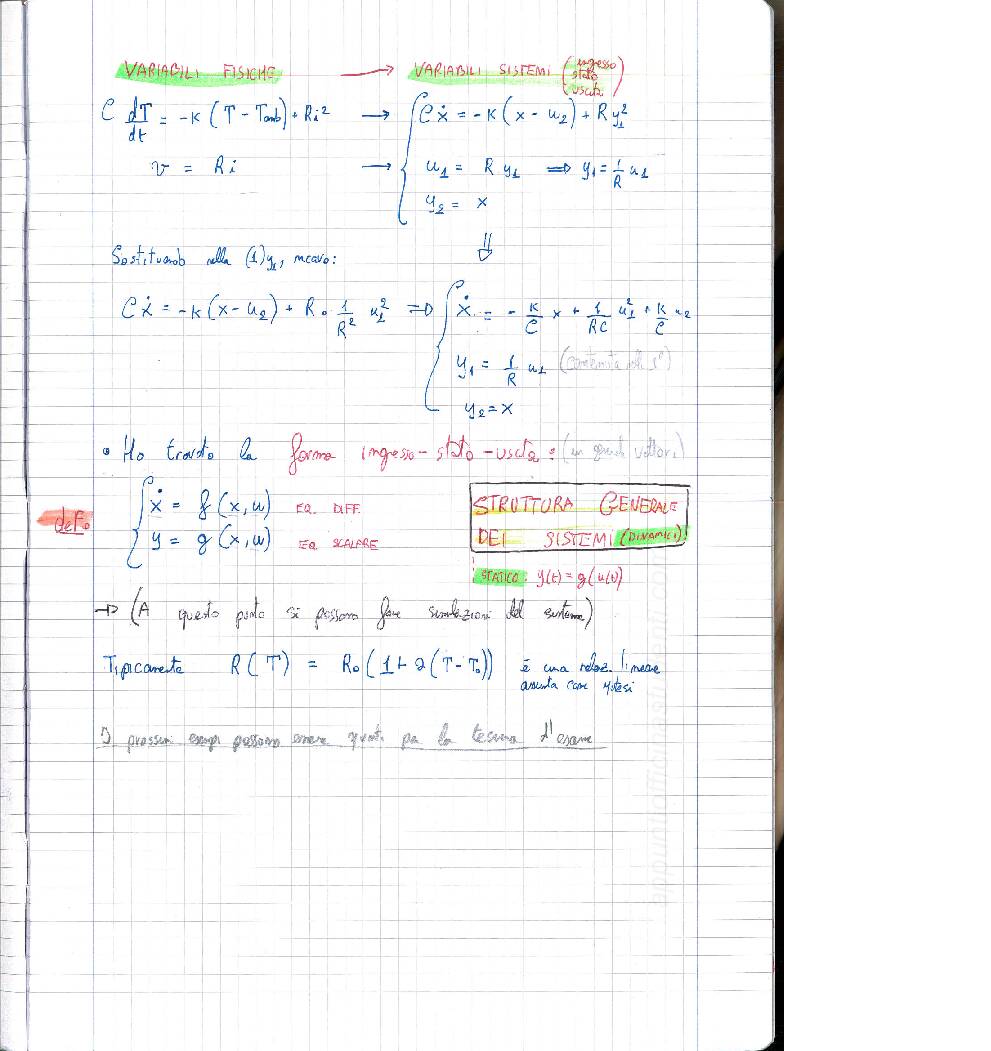 VARIABILI FISICHE → VARIABILI SISTEMI (ingresso stato uscita)
C dT/dt = -K (T - Tamb) + Ri² → { C ẋ = -K (x - u₂) + R y₁²
v = Ri → u₁ = R y₁ ⇒ y₁ = 1/R u₁
y₂ = x
⇓
Sostituendo nella (1) y₁, ricavo:
C ẋ = -K (x - u₂) + R · 1/R² u₁² ⇒ { ẋ = - K/C x + 1/RC u₁² + K/C u₂
y₁ = 1/R u₁ (contenuta nella 1ª)
y₂ = x
• Ho trovato la forma ingresso - stato - uscita: (in grande vettori)
def. { ẋ = f (x, u) EQ. DIFF.
y = g (x, u) EQ. SCALARE
STRUTTURA GENERALE
DEI SISTEMI (DINAMICI)
STATICO: y(t) = g(u(t))
→ (A questo punto si possono fare simulazioni del sistema)
Tipicamente R(T) = R₀ (1 + α (T - T₀)) è una relaz. lineare
assunta come ipotesi
I prossimi esempi possono essere spunti per la tesina d'esame